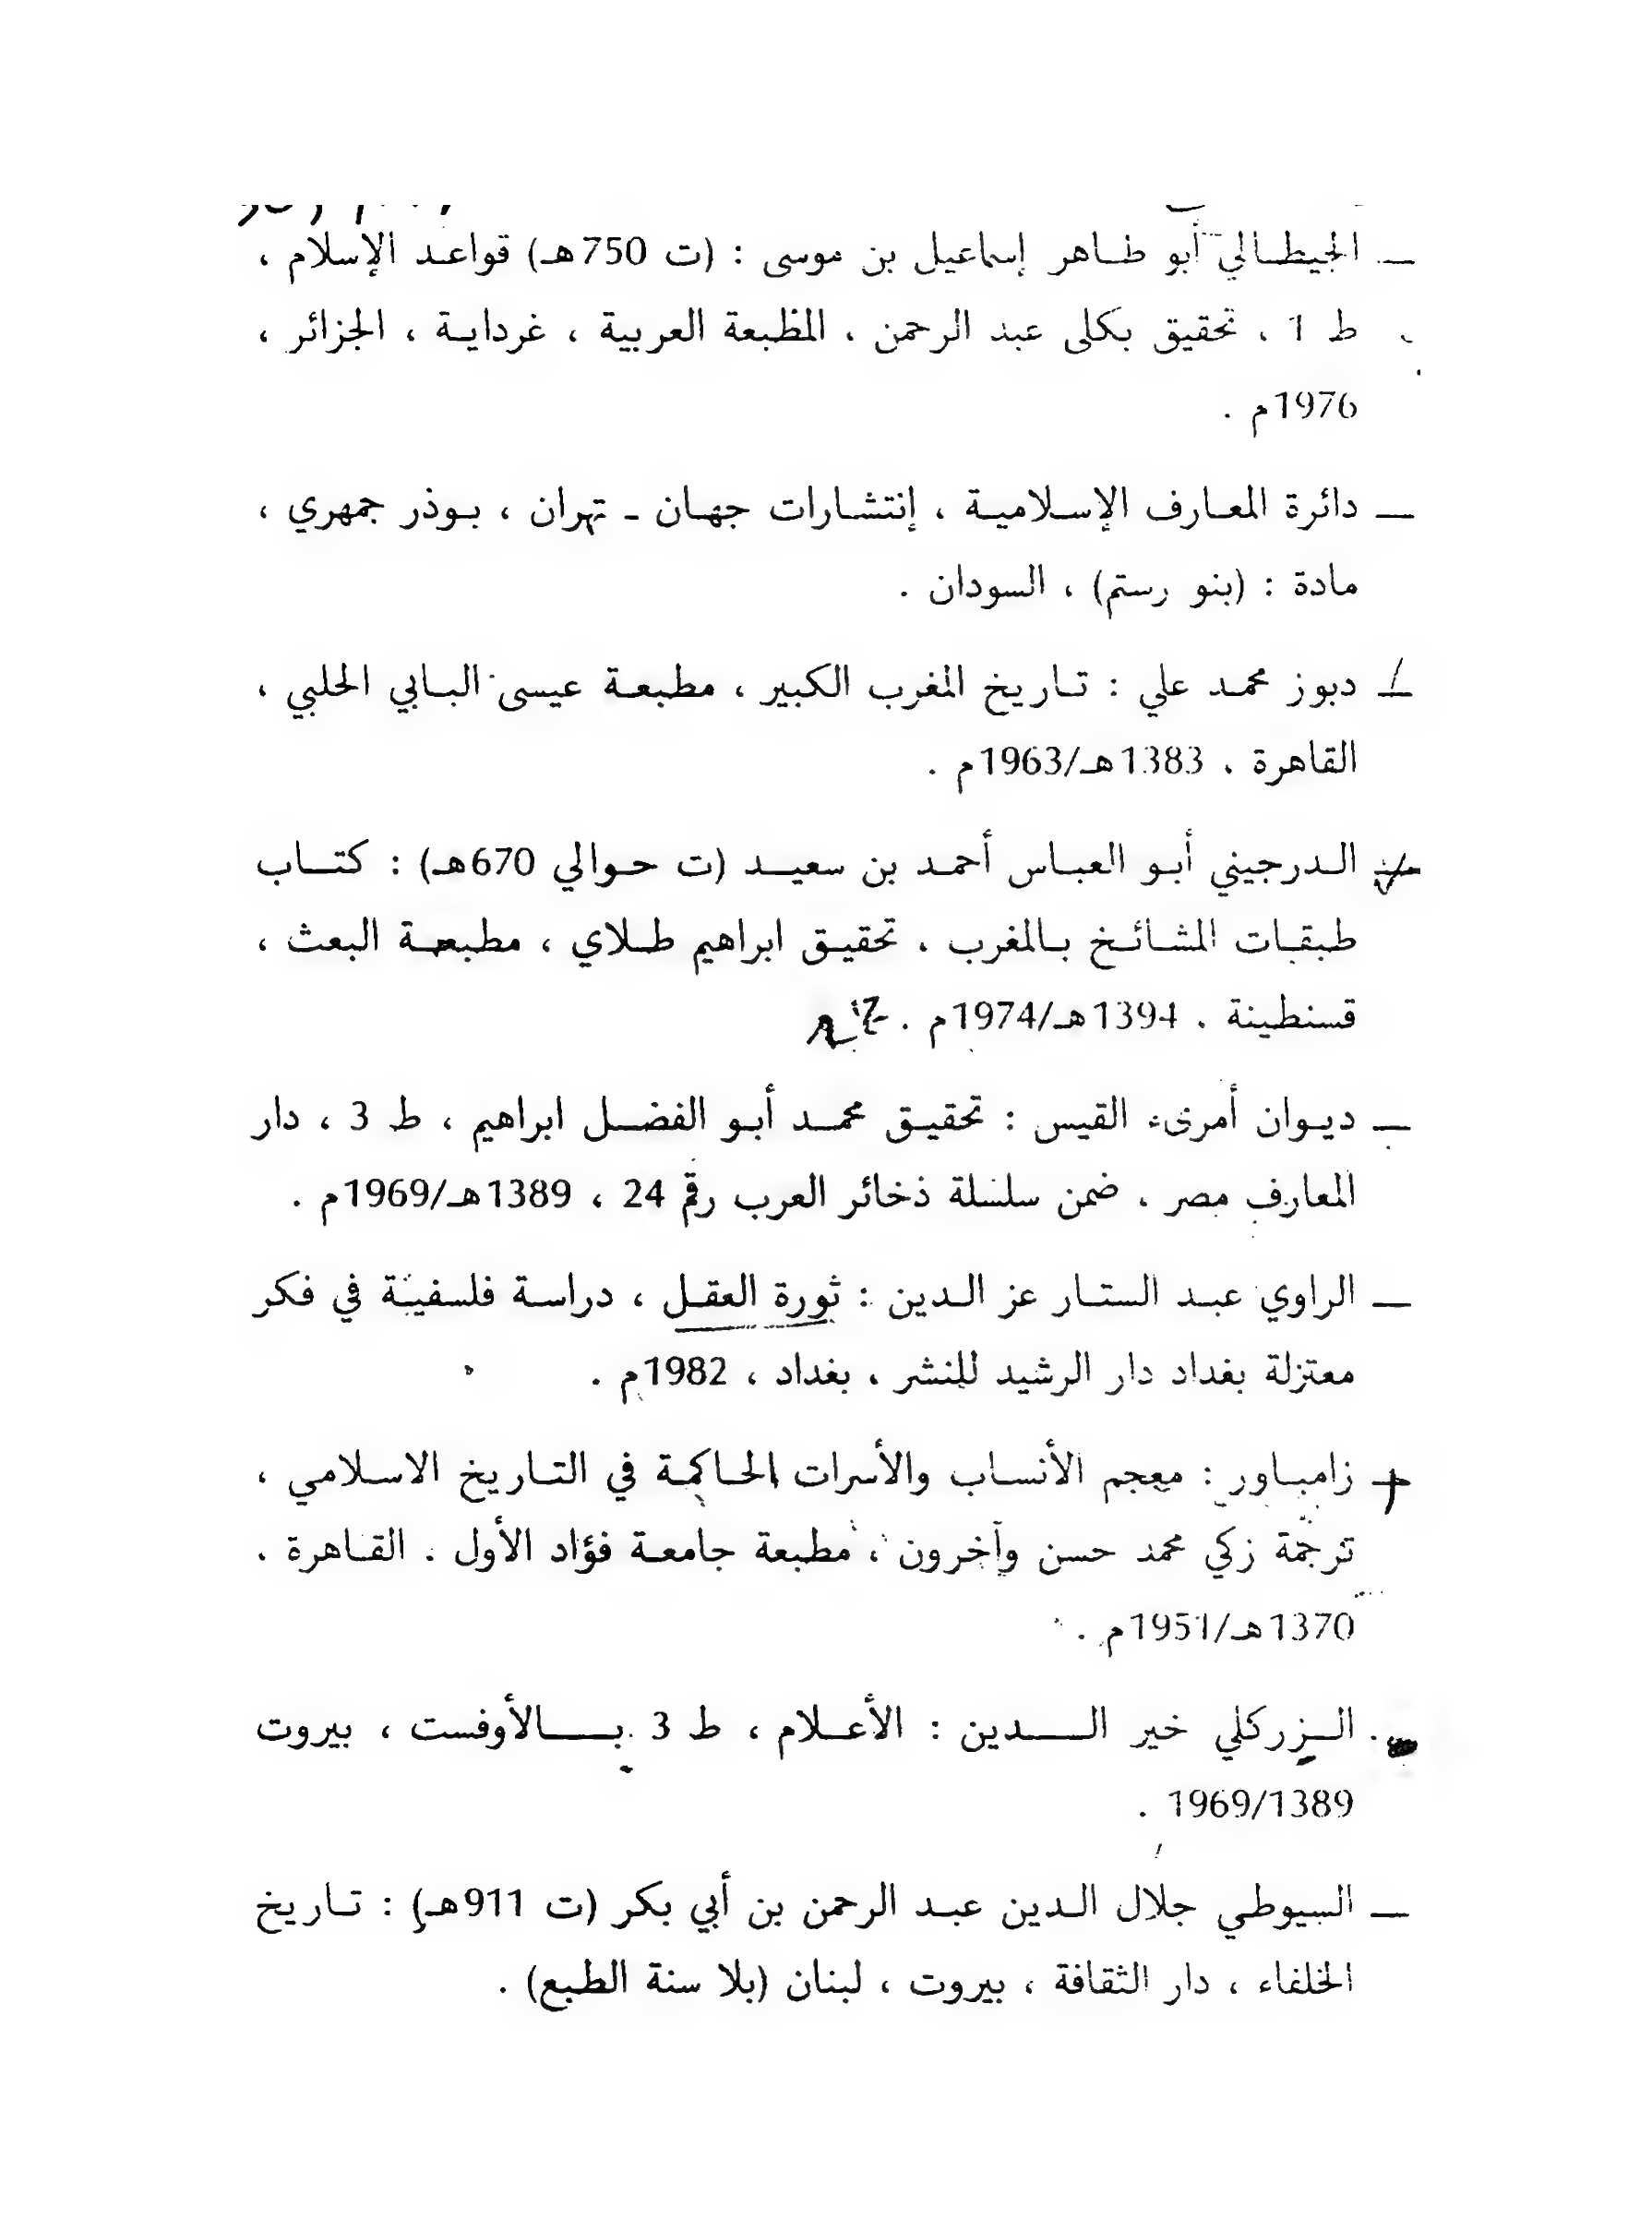 ــ الجيطالي أبو طاهر إسماعيل بن موسى : (ت 750هـ) قواعد الإسلام ،
ط 1 ، تحقيق بكلى عبد الرحمن ، المطبعة العربية ، غرداية ، الجزائر ،
1976م .
ــ دائرة المعارف الإسلامية ، إنتشارات جهان ـ تهران ، بوذر جمهري ،
مادة : (بنو رستم) ، السودان .
ــ دبوز محمد علي : تاريخ المغرب الكبير ، مطبعة عيسى البابي الحلبي ،
القاهرة ، 1383هـ/1963م .
ــ الدرجيني أبو العباس أحمد بن سعيد (ت حوالي 670هـ) : كتاب
طبقات المشائخ بالمغرب ، تحقيق ابراهيم طلاي ، مطبعة البعث ،
قسنطينة ، 1394هـ/1974م .
ــ ديوان أمرىء القيس : تحقيق محمد أبو الفضل ابراهيم ، ط 3 ، دار
المعارف مصر ، ضمن سلسلة ذخائر العرب رقم 24 ، 1389هـ/1969م .
ــ الراوي عبد الستار عز الدين : ثورة العقل ، دراسة فلسفية في فكر
معتزلة بغداد دار الرشيد للنشر ، بغداد ، 1982م .
ــ زامباور : معجم الأنساب والأسرات الحاكمة في التاريخ الاسلامي ،
ترجمة زكي محمد حسن وآخرون ، مطبعة جامعة فؤاد الأول . القاهرة .
1370هـ/1951م .
ــ الزركلي خير الدين : الأعلام ، ط 3 بالأوفست ، بيروت
1969/1389 .
ــ السيوطي جلال الدين عبد الرحمن بن أبي بكر (ت 911هـ) : تاريخ
الخلفاء ، دار الثقافة ، بيروت ، لبنان (بلا سنة الطبع) .